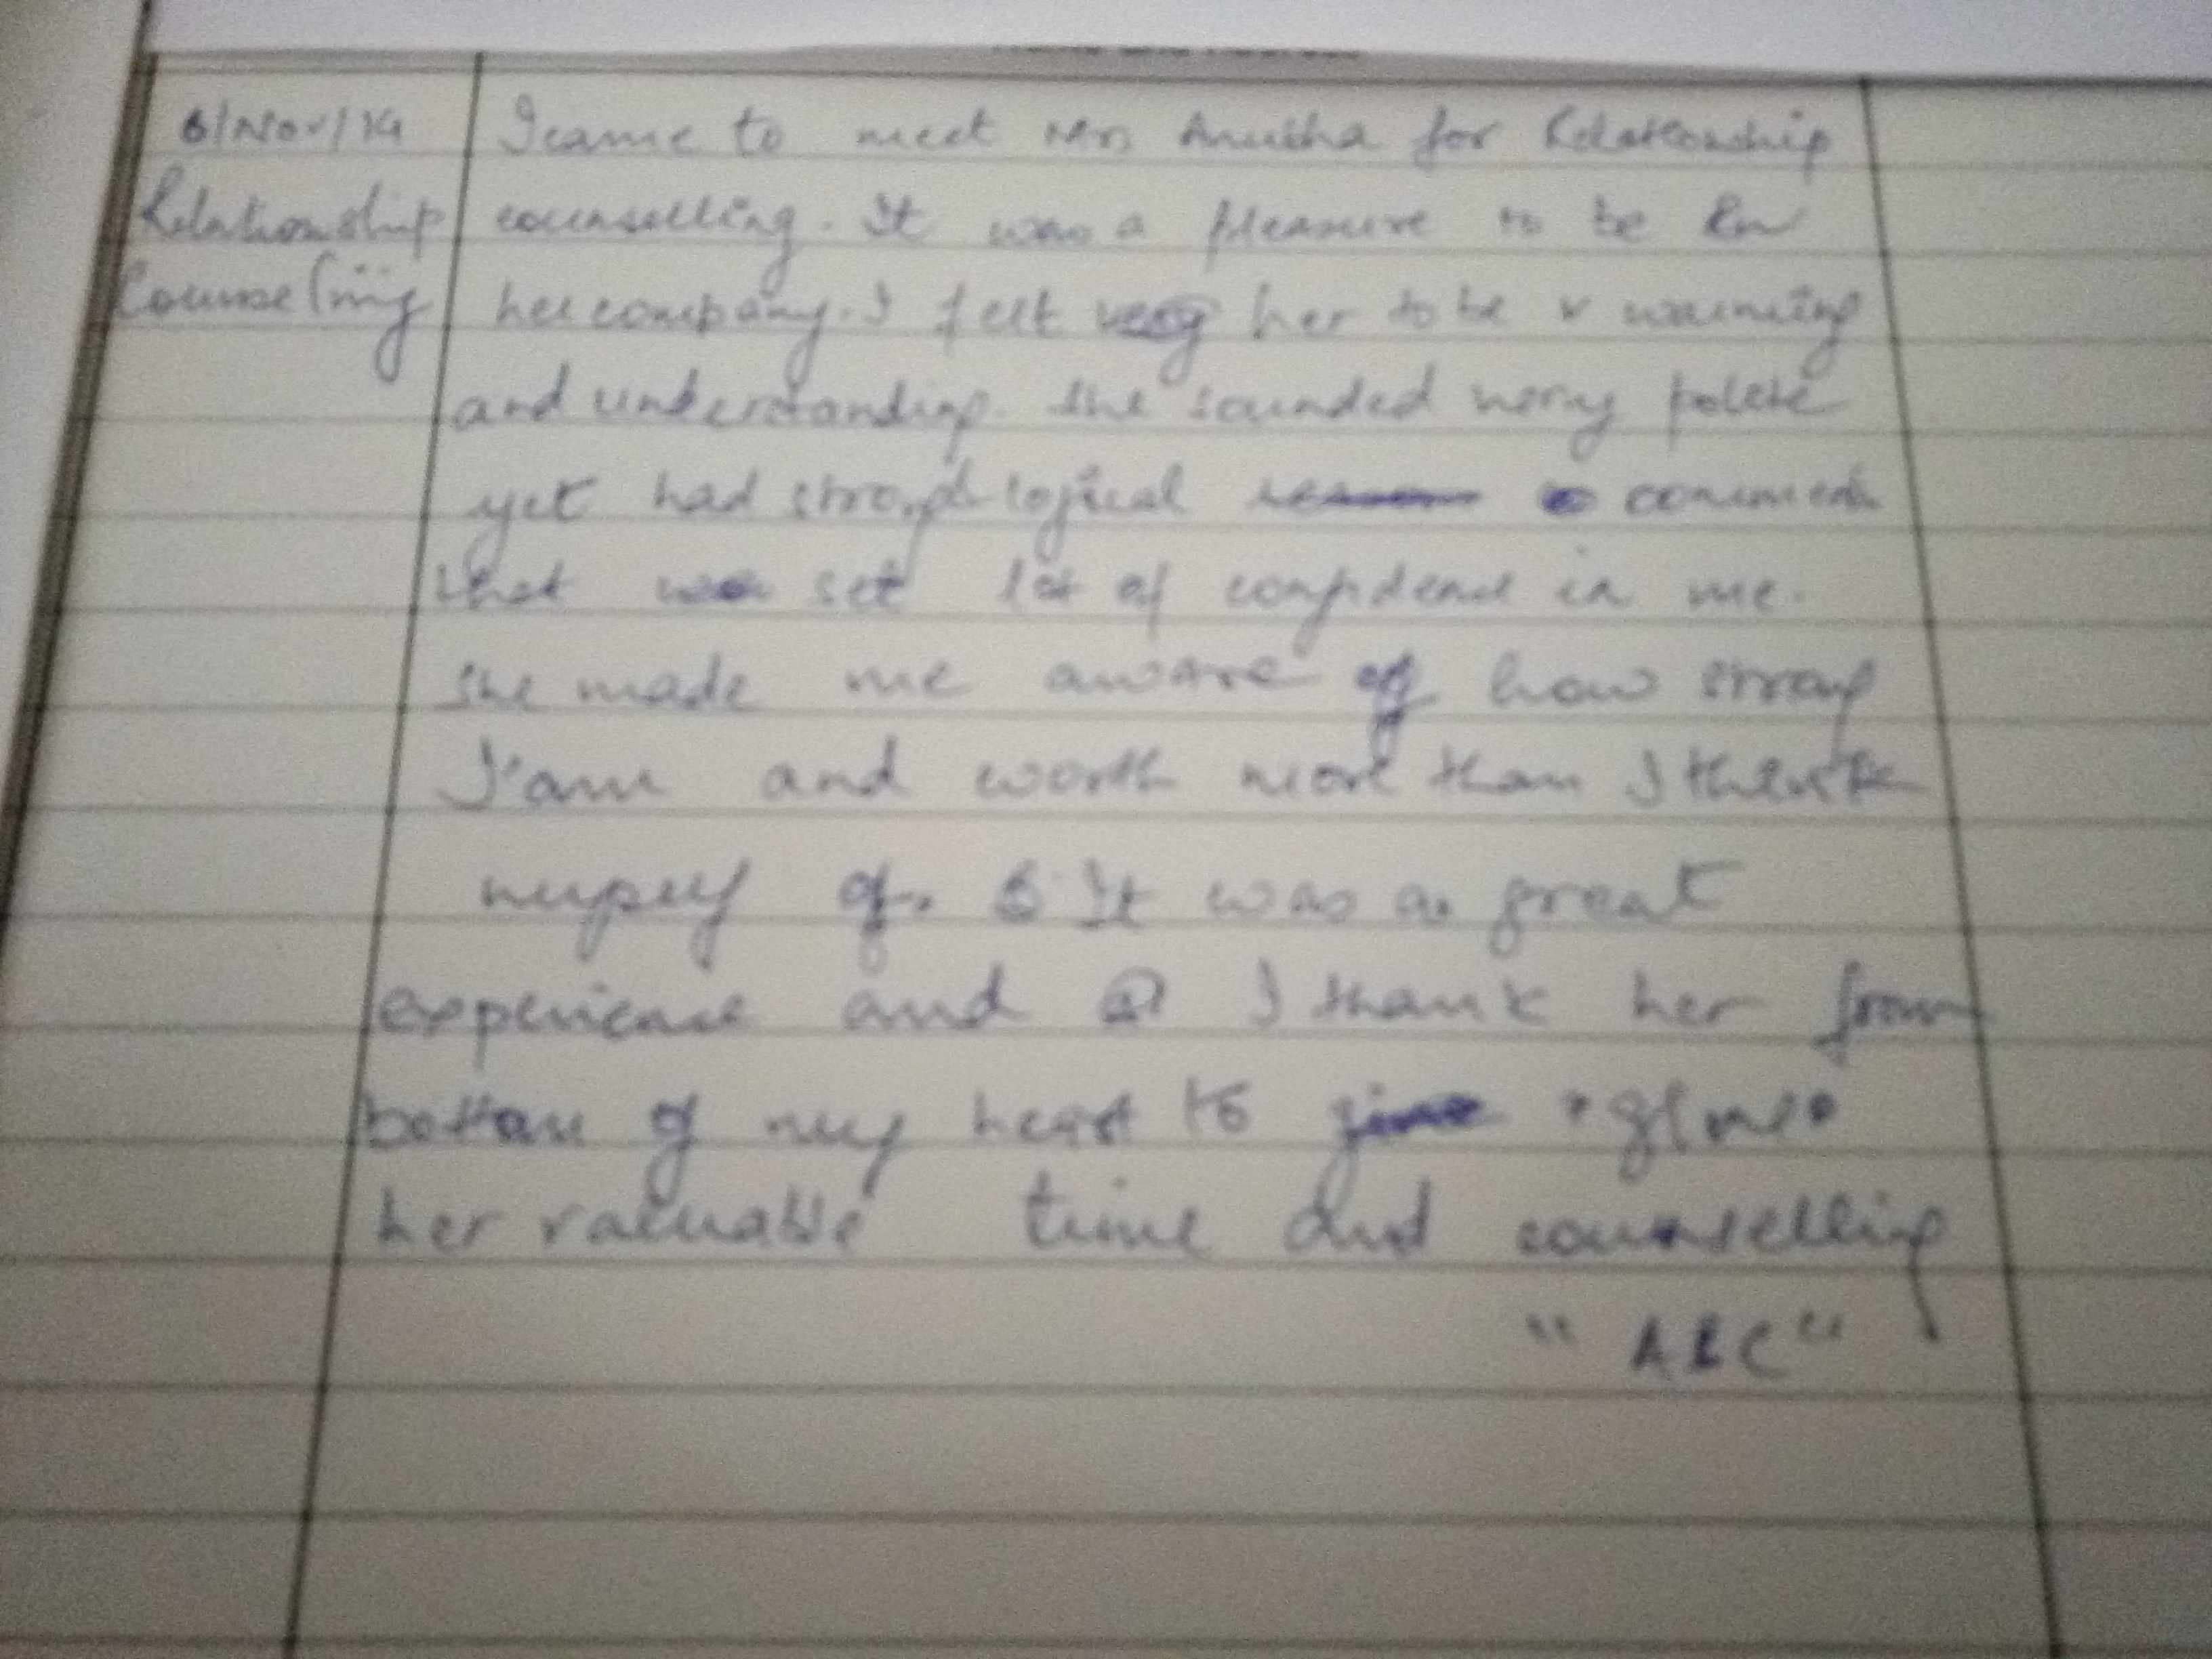 6/Nov/14
Relationship
Counseling
I came to meet Mrs Anusha for Relationship
counselling. It was a pleasure to be in
her company. I felt her to be v warming
and understanding. She sounded very polite
yet had strong logical comments
that set lot of confidence in me.
She made me aware of how strong
I'am and worth more than I think
myself of. It was a great
experience and I thank her from
bottom of my heart to give
her valuable time and counselling
"ABC"